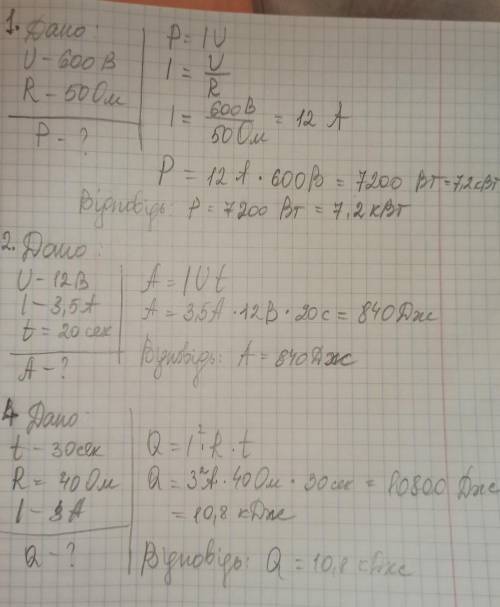 1. Дано:
U - 600 В
R - 50 Ом
P - ?
P = IU
I = U/R
I = 600 В/50 Ом = 12 А
P = 12 А · 600 В = 7200 Вт = 7,2 кВт
Відповідь: P = 7200 Вт = 7,2 кВт
2. Дано:
U - 12 В
I - 3,5 А
t = 20 сек
A - ?
A = IUt
A = 3,5 А · 12 В · 20 с = 840 Дж
Відповідь: A = 840 Дж
4 Дано
t - 30 сек
R = 40 Ом
I - 3 А
Q - ?
Q = I² · R · t
Q = 3² А · 40 Ом · 30 сек = 10800 Дж
= 10,8 кДж
Відповідь: Q = 10,8 кДж